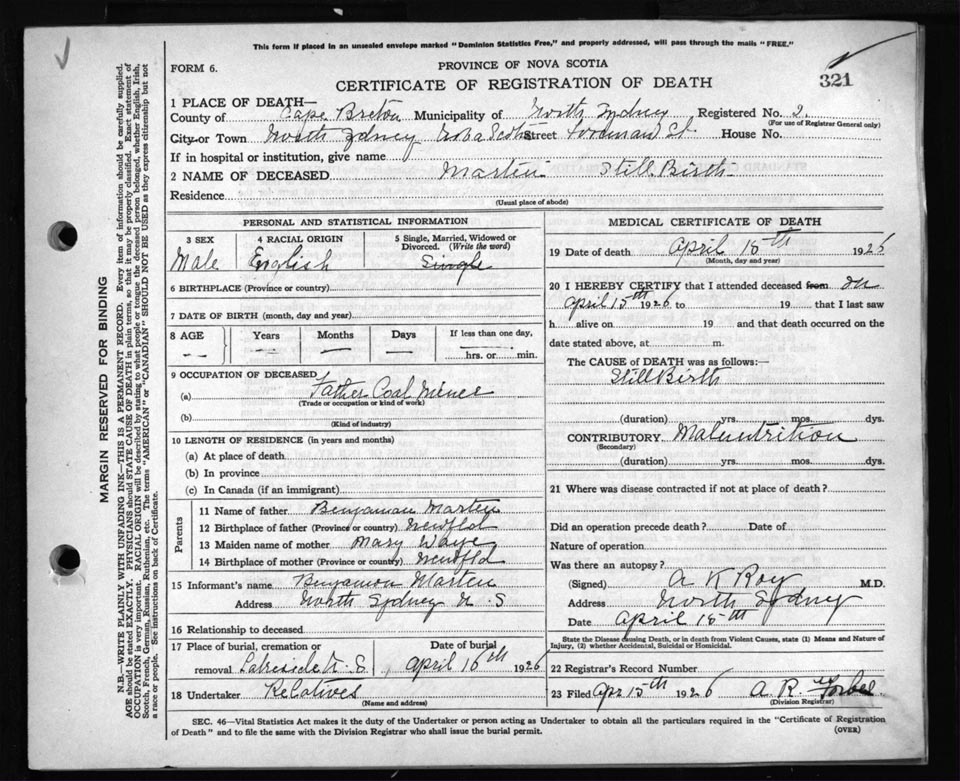 This form if placed in an unsealed envelope marked "Dominion Statistics Free," and properly addressed, will pass through the mails "FREE."
FORM 6.
PROVINCE OF NOVA SCOTIA
CERTIFICATE OF REGISTRATION OF DEATH
321
1 PLACE OF DEATH—
County of Cape Breton Municipality of North Sydney Registered No 2.
(For use of Registrar General only)
City or Town North Sydney Nova Scotia Street St. House No.
If in hospital or institution, give name
2 NAME OF DECEASED Martin Still Birth
Residence
(Usual place of abode)
PERSONAL AND STATISTICAL INFORMATION
3 SEX 4 RACIAL ORIGIN 5 Single, Married, Widowed or Divorced. (Write the word)
Male English Single
6 BIRTHPLACE (Province or country)
7 DATE OF BIRTH (month, day and year)
8 AGE Years Months Days If less than one day,
hrs. or min.
9 OCCUPATION OF DECEASED
(a) Father Coal Miner
(Trade or occupation or kind of work)
(b)
(Kind of industry)
10 LENGTH OF RESIDENCE (in years and months)
(a) At place of death
(b) In province
(c) In Canada (if an immigrant)
Parents
11 Name of father Benjamin Martin
12 Birthplace of father (Province or country) Newfld
13 Maiden name of mother Mary Waye
14 Birthplace of mother (Province or country) Newfld
15 Informant's name Benjamin Martin
Address North Sydney N. S
16 Relationship to deceased
17 Place of burial, cremation or removal Lakeside N. S. Date of burial April 16th 1926
18 Undertaker Relatives
(Name and address)
MEDICAL CERTIFICATE OF DEATH
19 Date of death April 15th 1926
(Month, day and year)
20 I HEREBY CERTIFY that I attended deceased from on
April 15th 1926 to 19 that I last saw
h alive on 19 and that death occurred on the
date stated above, at m.
The CAUSE of DEATH was as follows:—
Still Birth
(duration) yrs. mos. dys.
CONTRIBUTORY Malnutrition
(Secondary)
(duration) yrs. mos. dys.
21 Where was disease contracted if not at place of death?
Did an operation precede death? Date of
Nature of operation
Was there an autopsy?
(Signed) A K Roy M.D.
Address North Sydney
Date April 15th
State the Disease causing Death, or in death from Violent Causes, state (1) Means and Nature of Injury, (2) whether Accidental, Suicidal or Homicidal.
22 Registrar's Record Number
23 Filed Apr 15th 1926 A. R. Forbes
(Division Registrar)
SEC. 46—Vital Statistics Act makes it the duty of the Undertaker or person acting as Undertaker to obtain all the particulars required in the "Certificate of Registration
of Death" and to file the same with the Division Registrar who shall issue the burial permit.
(OVER)
MARGIN RESERVED FOR BINDING
N.B.—WRITE PLAINLY WITH UNFADING INK—THIS IS A PERMANENT RECORD. Every item of information should be carefully supplied.
AGE should be stated EXACTLY. PHYSICIANS should STATE CAUSE OF DEATH in plain terms, so that it may be properly classified. Exact statement of
OCCUPATION is very important. RACIAL ORIGIN will be described by stating to what people or tongue the deceased person belonged, whether English, Irish,
Scotch, French, German, Russian, Ruthenian, etc. The terms "AMERICAN" or "CANADIAN" SHOULD NOT BE USED as they express citizenship but not
a race or people. See instructions on back of Certificate.